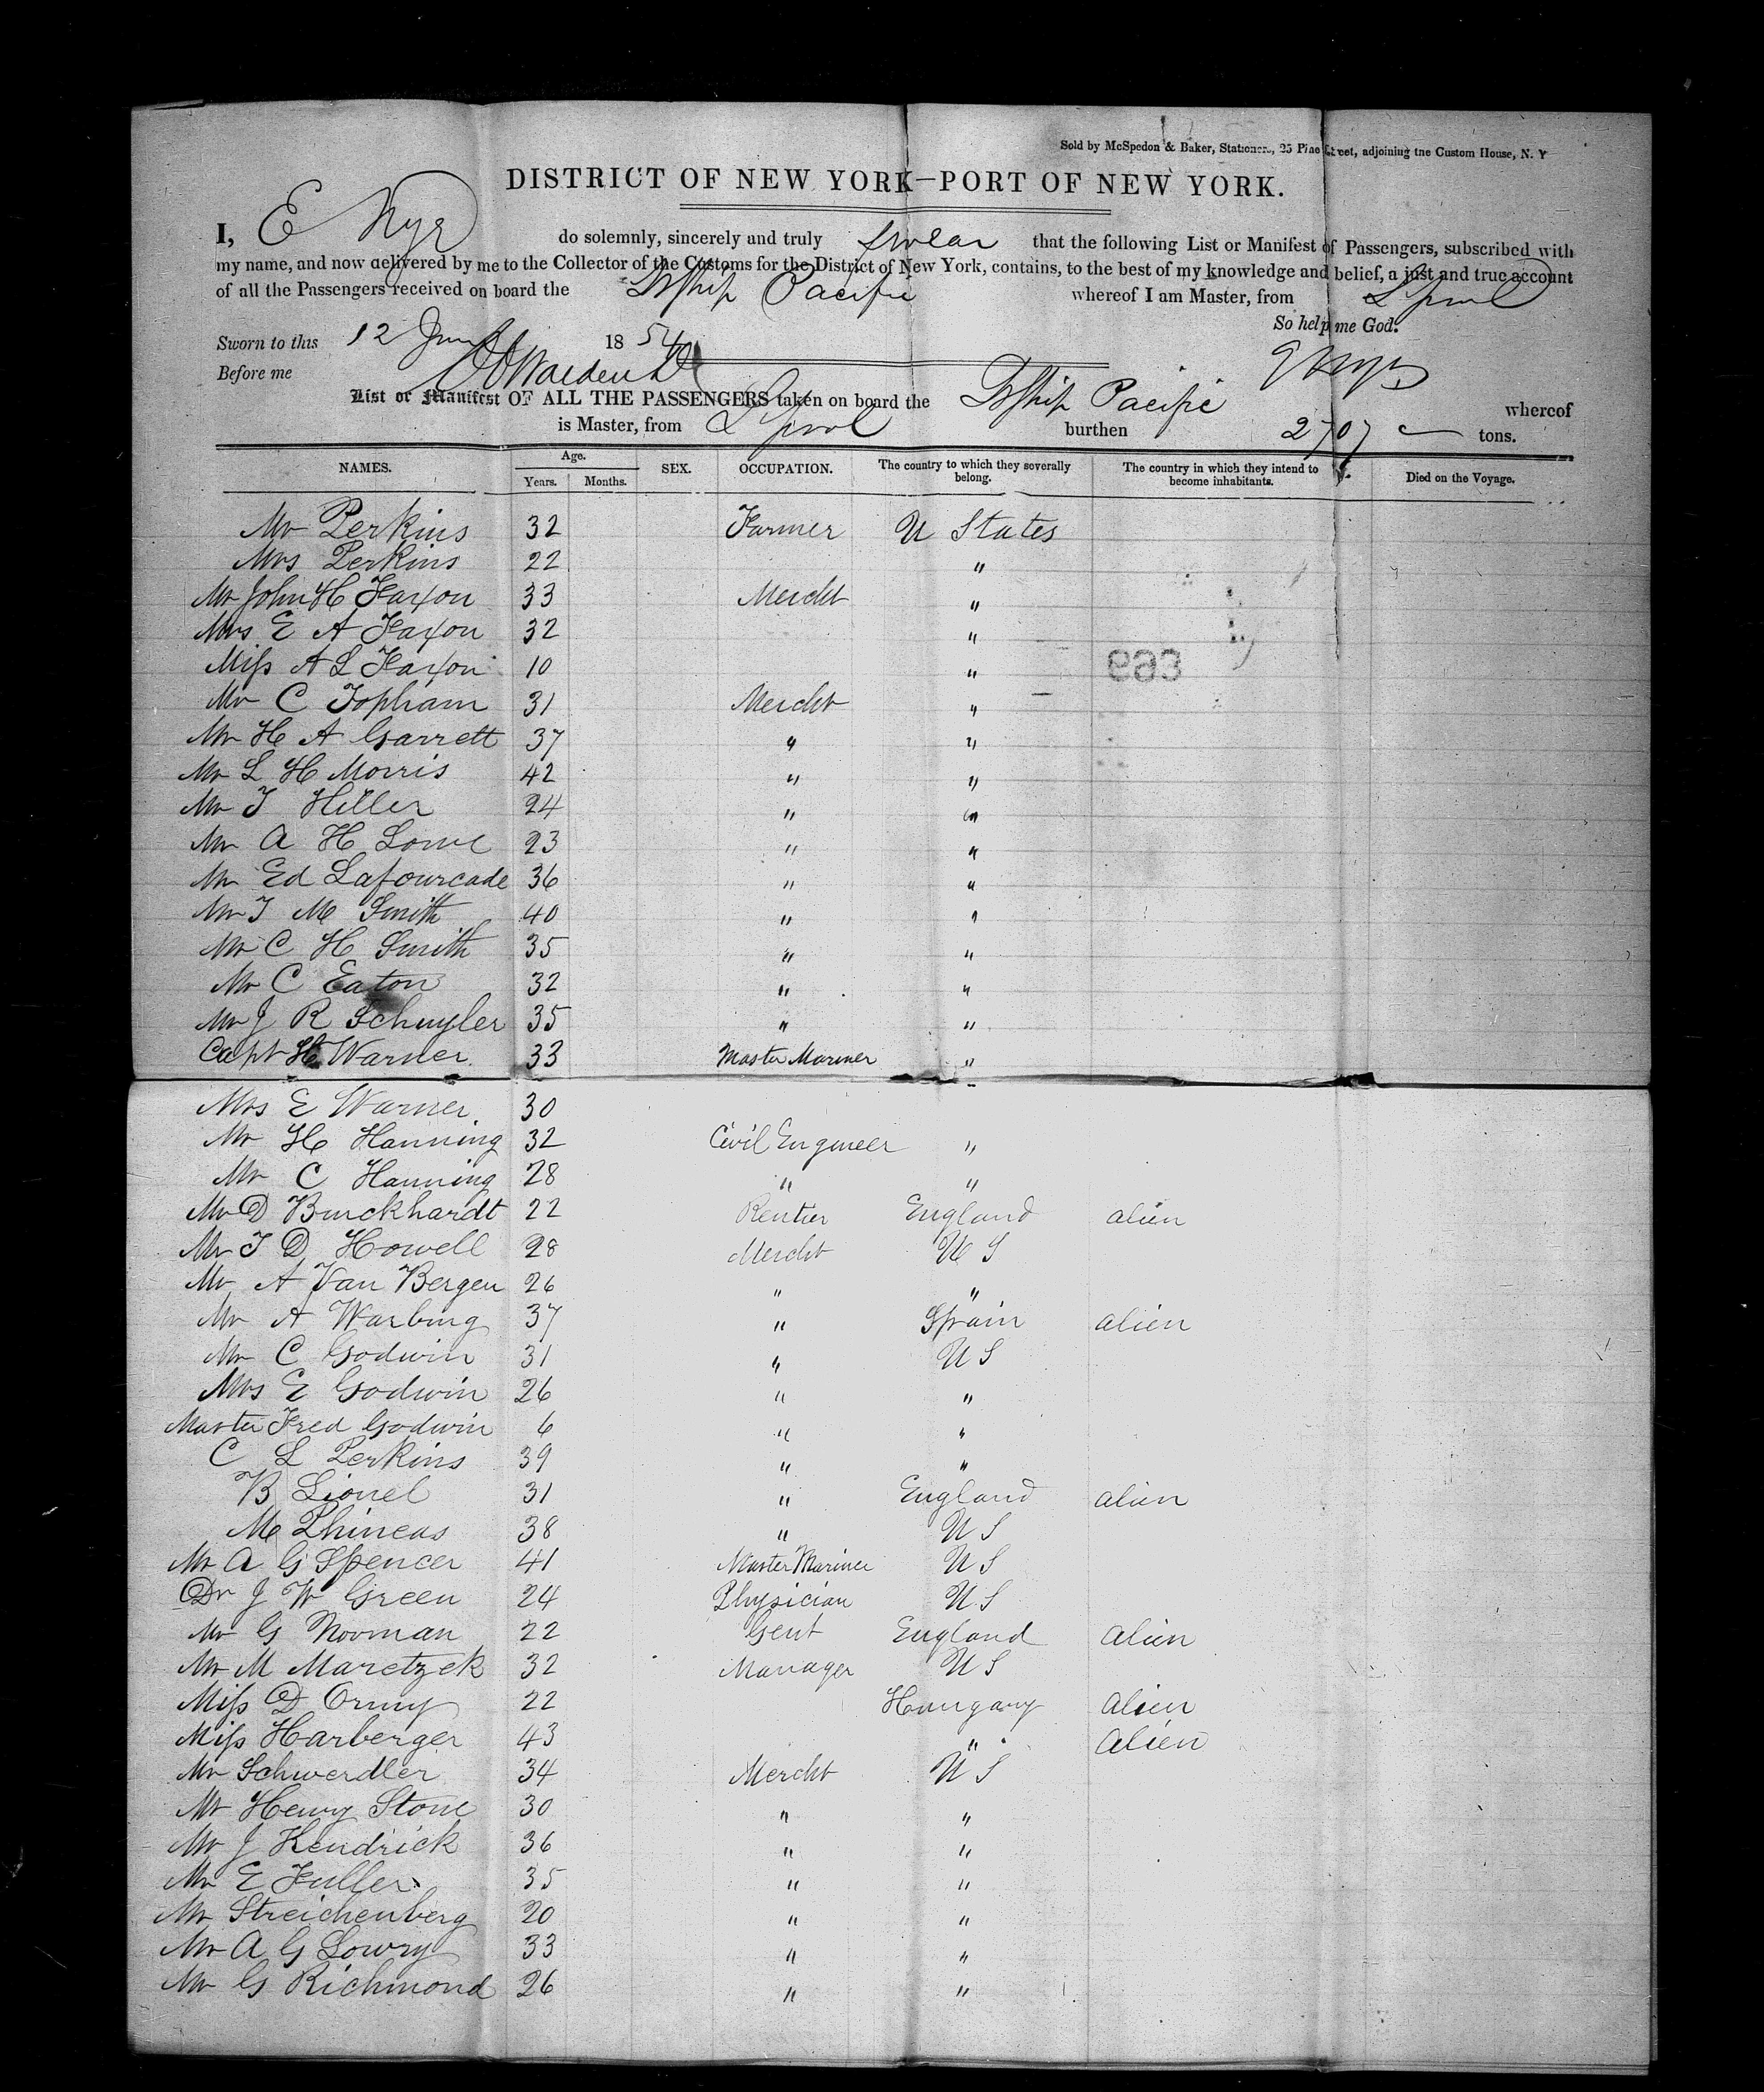 Sold by McSpedon & Baker, Stationers, 25 Pine Street, adjoining the Custom House, N. Y
DISTRICT OF NEW YORK—PORT OF NEW YORK.
I, E Nye do solemnly, sincerely and truly swear that the following List or Manifest of Passengers, subscribed with
my name, and now delivered by me to the Collector of the Customs for the District of New York, contains, to the best of my knowledge and belief, a just and true account
of all the Passengers received on board the StShip Pacific whereof I am Master, from Lpool
So help me God.
Sworn to this 12 June 1854
Before me E Nye
List or Manifest OF ALL THE PASSENGERS taken on board the StShip Pacific whereof
is Master, from Lpool burthen 2707 tons.
NAMES. Age. Years. Months. SEX. OCCUPATION. The country to which they severally belong. The country in which they intend to become inhabitants. Died on the Voyage.
Mr Perkins 32 Farmer U States
Mrs Perkins 22 "
Mr John H Faxon 33 Mercht "
Mrs E A Faxon 32 "
Miss A L Faxon 10 "
Mr C Topham 31 Mercht "
Mr H A Garrett 37 " "
Mr L H Morris 42 " "
Mr T Hiller 24 " "
Mr A H Lowe 23 " "
Mr Ed Lafourcade 36 " "
Mr T M Smith 40 " "
Mr C H Smith 35 " "
Mr C Eaton 32 " "
Mr J R Schuyler 35 " "
Capt H Warner 33 Master Mariner "
Mrs E Warner 30 "
Mr H Hanning 32 Civil Engineer "
Mr C Hanning 28 " "
Mr D Burckhardt 22 Rentier England alien
Mr T D Howell 28 Mercht U S
Mr A Van Bergen 26 " "
Mr A Warburg 37 " Spain alien
Mr C Godwin 31 " U S
Mrs E Godwin 26 " "
Master Fred Godwin 6 " "
C L Perkins 39 " "
B Lionel 31 " England alien
M Phineas 38 " U S
Mr A G Spencer 41 Master Mariner U S
Dr J W Green 24 Physician U S
Mr G Norman 22 Gent England alien
Mr M Maretzek 32 Manager U S
Miss D Ormy 22 Hungary alien
Miss Harberger 43 " alien
Mr Schwerdler 34 Mercht U S
Mr Henry Stone 30 " "
Mr J Kendrick 36 " "
Mr E Fuller 35 " "
Mr Streichenberg 20 " "
Mr A G Lowry 33 " "
Mr G Richmond 26 " "